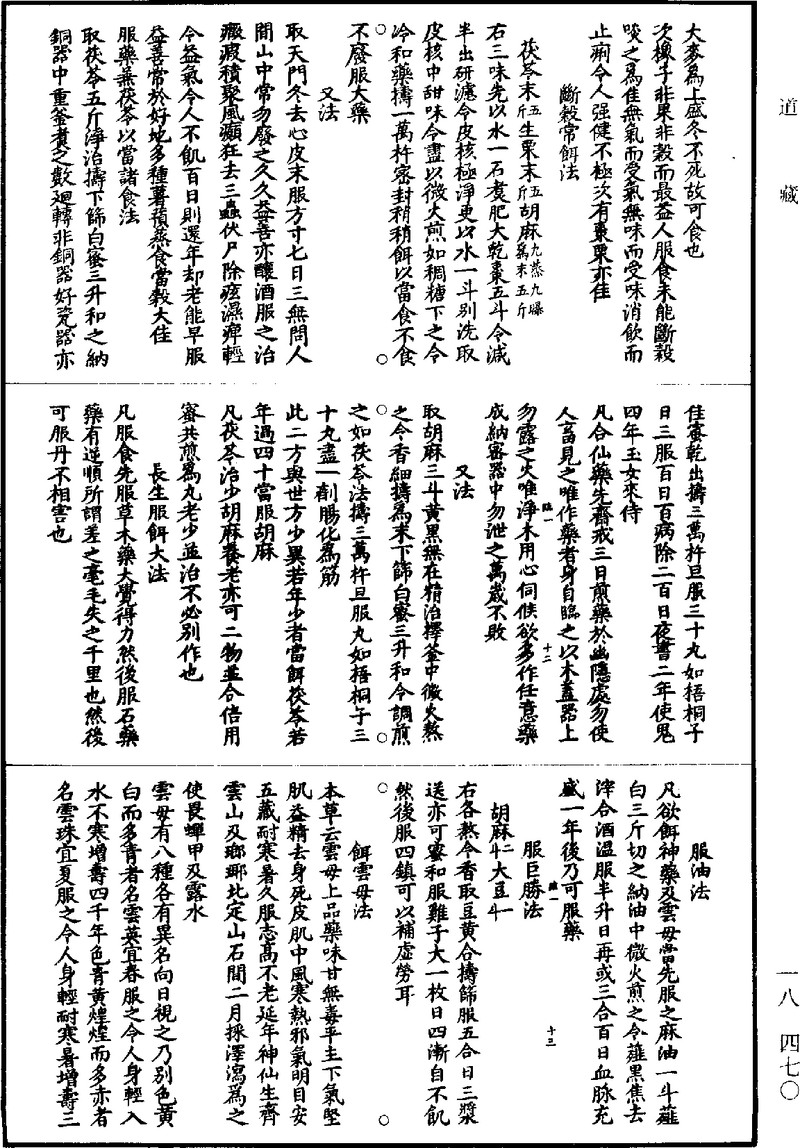 道藏
一八 四七〇
大麥為上盛冬不死故可食也
次橡子非果非穀而最益人服食未能斷穀
啖之為佳無氣而受氣無味而受味消飲而
止痢令人强健不極次有棗栗亦佳
斷穀常餌法
茯苓末五斤生栗末五斤胡麻九蒸九曝為末五斤
右三味先以水一石煑肥大乾棗五斗令減
半出研濾令皮核極淨更以水一斗別洗取
皮核中甜味令盡以微火煎如稠糖下之令
冷和藥擣一萬杵密封稍稍餌以當食不食
不廢服大藥
又法
取天門冬去心皮末服方寸匕日三無問人
間山中常勿廢之久久益善亦釀酒服之治
癥瘕積聚風癲狂去三蟲伏尸除痃濕痺輕
令益氣令人不飢百日則還年却老能早服
益善常於好地多種薯蕷蒸食當穀大佳
服藥兼茯苓以當諸食法
取茯苓五斤淨治擣下篩白蜜三升和之納
銅器中重釜煑之數迴轉非銅器好瓷器亦
佳蜜乾出擣三萬杵旦服三十丸如梧桐子
日三服百日百病除二百日夜書二年使鬼
四年玉女來侍
凡合仙藥先齋戒三日煎藥於幽隱處勿使
人畜見之唯作藥者身自臨之以木蓋器上
勿露之火唯淨木用心伺候欲多作任意藥
成納密器中勿泄之萬歲不敗
又法
取胡麻三斗黄黑無在精治擇釜中微火熬
之令香細擣為末下篩白蜜三升和令調煎
之如茯苓法擣三萬杵旦服丸如梧桐子三
十丸盡一劑腸化為筋
此二方與世方少異若年少者當餌茯苓若
年過四十當服胡麻
凡茯苓治少胡麻養老亦可二物並合倍用
蜜共煎為丸老少並治不必別作也
長生服餌大法
凡服食先服草木藥大覺得力然後服石藥
藥有逆順所謂差之毫毛失之千里也然後
可服丹不相害也
服油法
凡欲餌神藥及雲母當先服之麻油一斗薤
白三斤切之納油中微火煎之令薤黑焦去
滓合酒温服半升日再或三合百日血脉充
盛一年後乃可服藥
服巨勝法
胡麻二斗大豆一斗
右各熬令香取豆黄合擣篩服五合日三漿
送亦可蜜和服雞子大一枚日四漸自不飢
然後服四鎮可以補虛勞耳
餌雲母法
本草云雲母上品藥味甘無毒平主下氣堅
肌益精去身死皮肌中風寒熱邪氣明目安
五藏耐寒暑久服志高不老延年神仙生齊
雲山及瑯琊北定山石間二月採澤瀉為之
使畏蟬甲及露水
雲母有八種各有異名向日視之乃別色黄
白而多青者名雲英宜春服之令人身輕入
水不寒增壽四千年色青黄煌煌而多赤者
名雲珠宜夏服之令人身輕耐寒暑增壽三
臨一
十二
臨一
十三